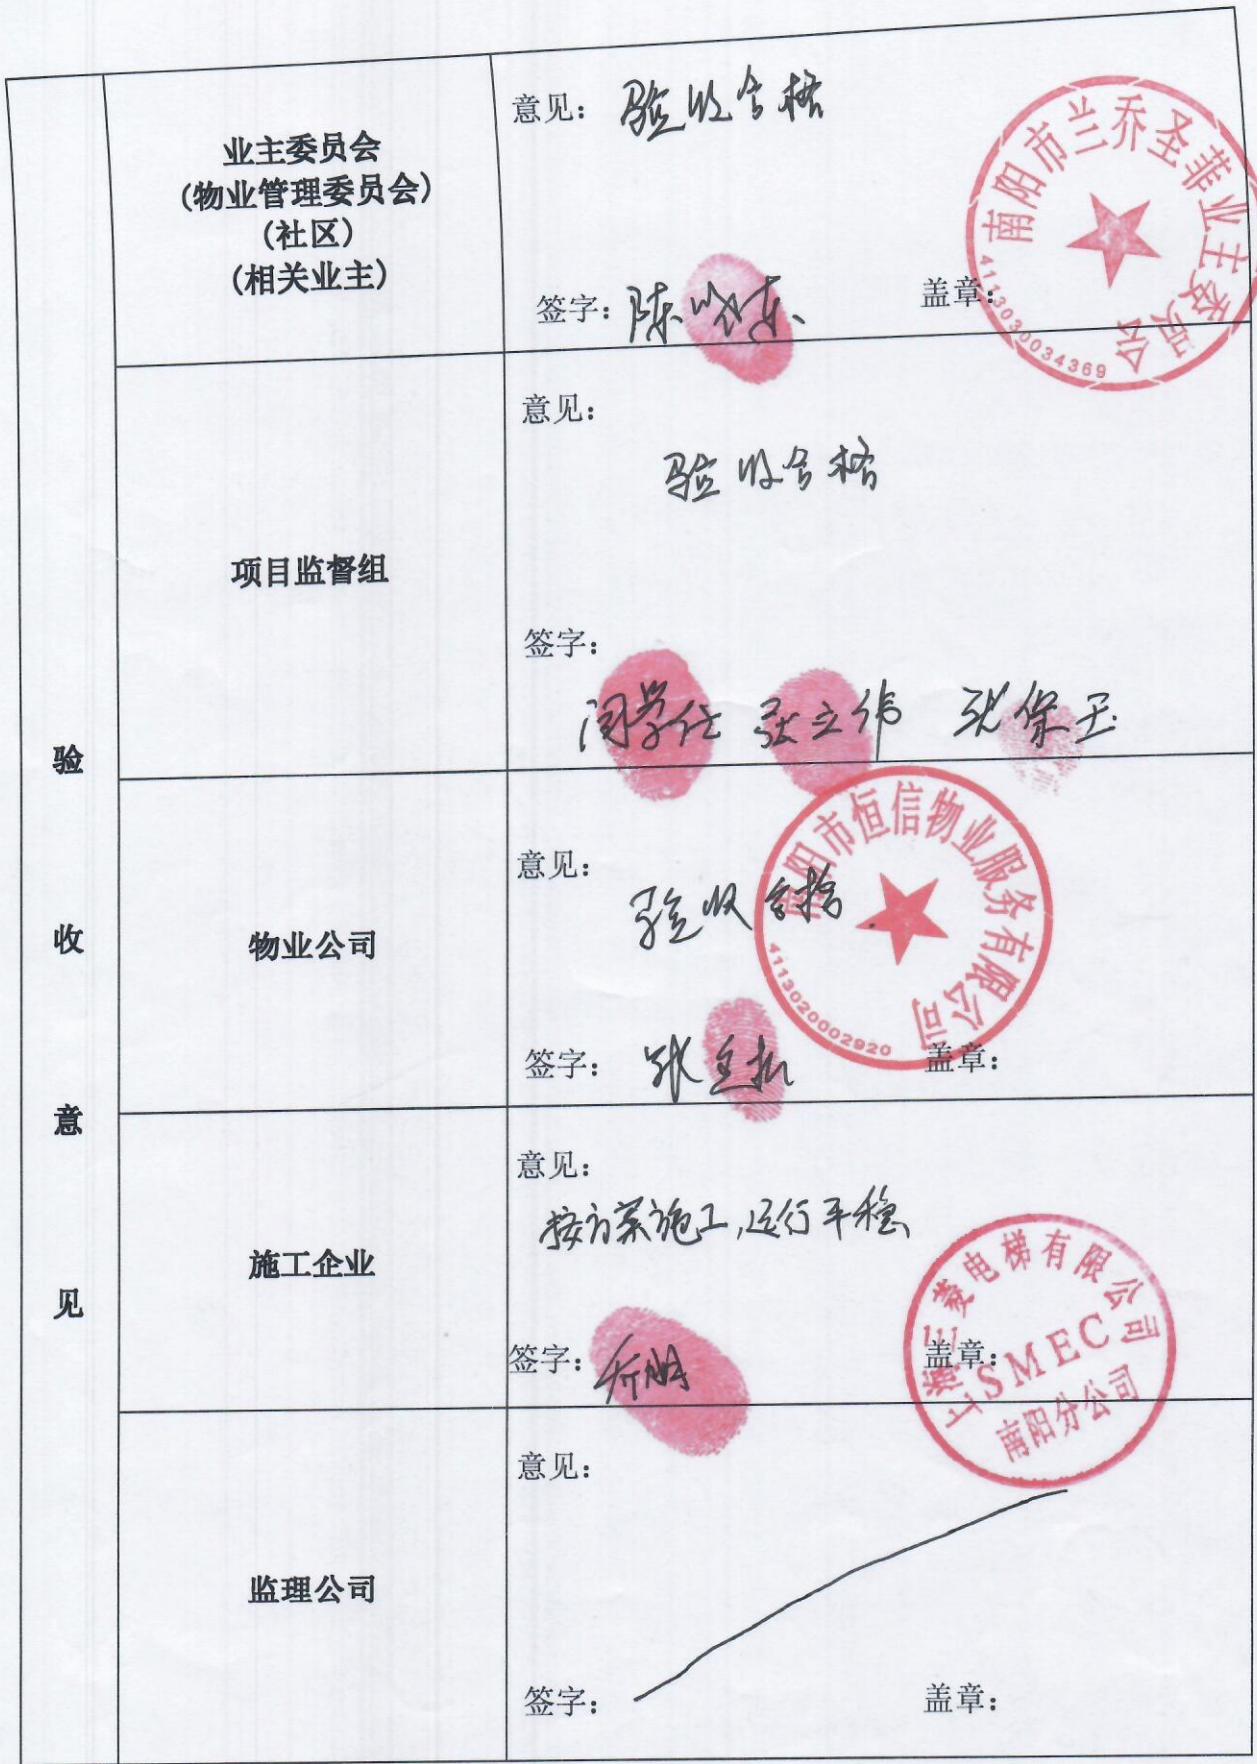 验收意见
业主委员会
(物业管理委员会)
(社区)
(相关业主)
意见：验收合格
签字：陈
盖章：
南阳市兰乔圣菲业主委员会
4113030034369
项目监督组
意见：
验收合格
签字：
闫学仕 张立伟 张保玉
物业公司
意见：
验收合格.
签字：张
盖章：
南阳市恒信物业服务有限公司
4113020002920
施工企业
意见：
按方案施工,运行平稳
签字：乔
盖章：
上海三菱电梯有限公司
SMEC
南阳分公司
监理公司
意见：
签字：
盖章：